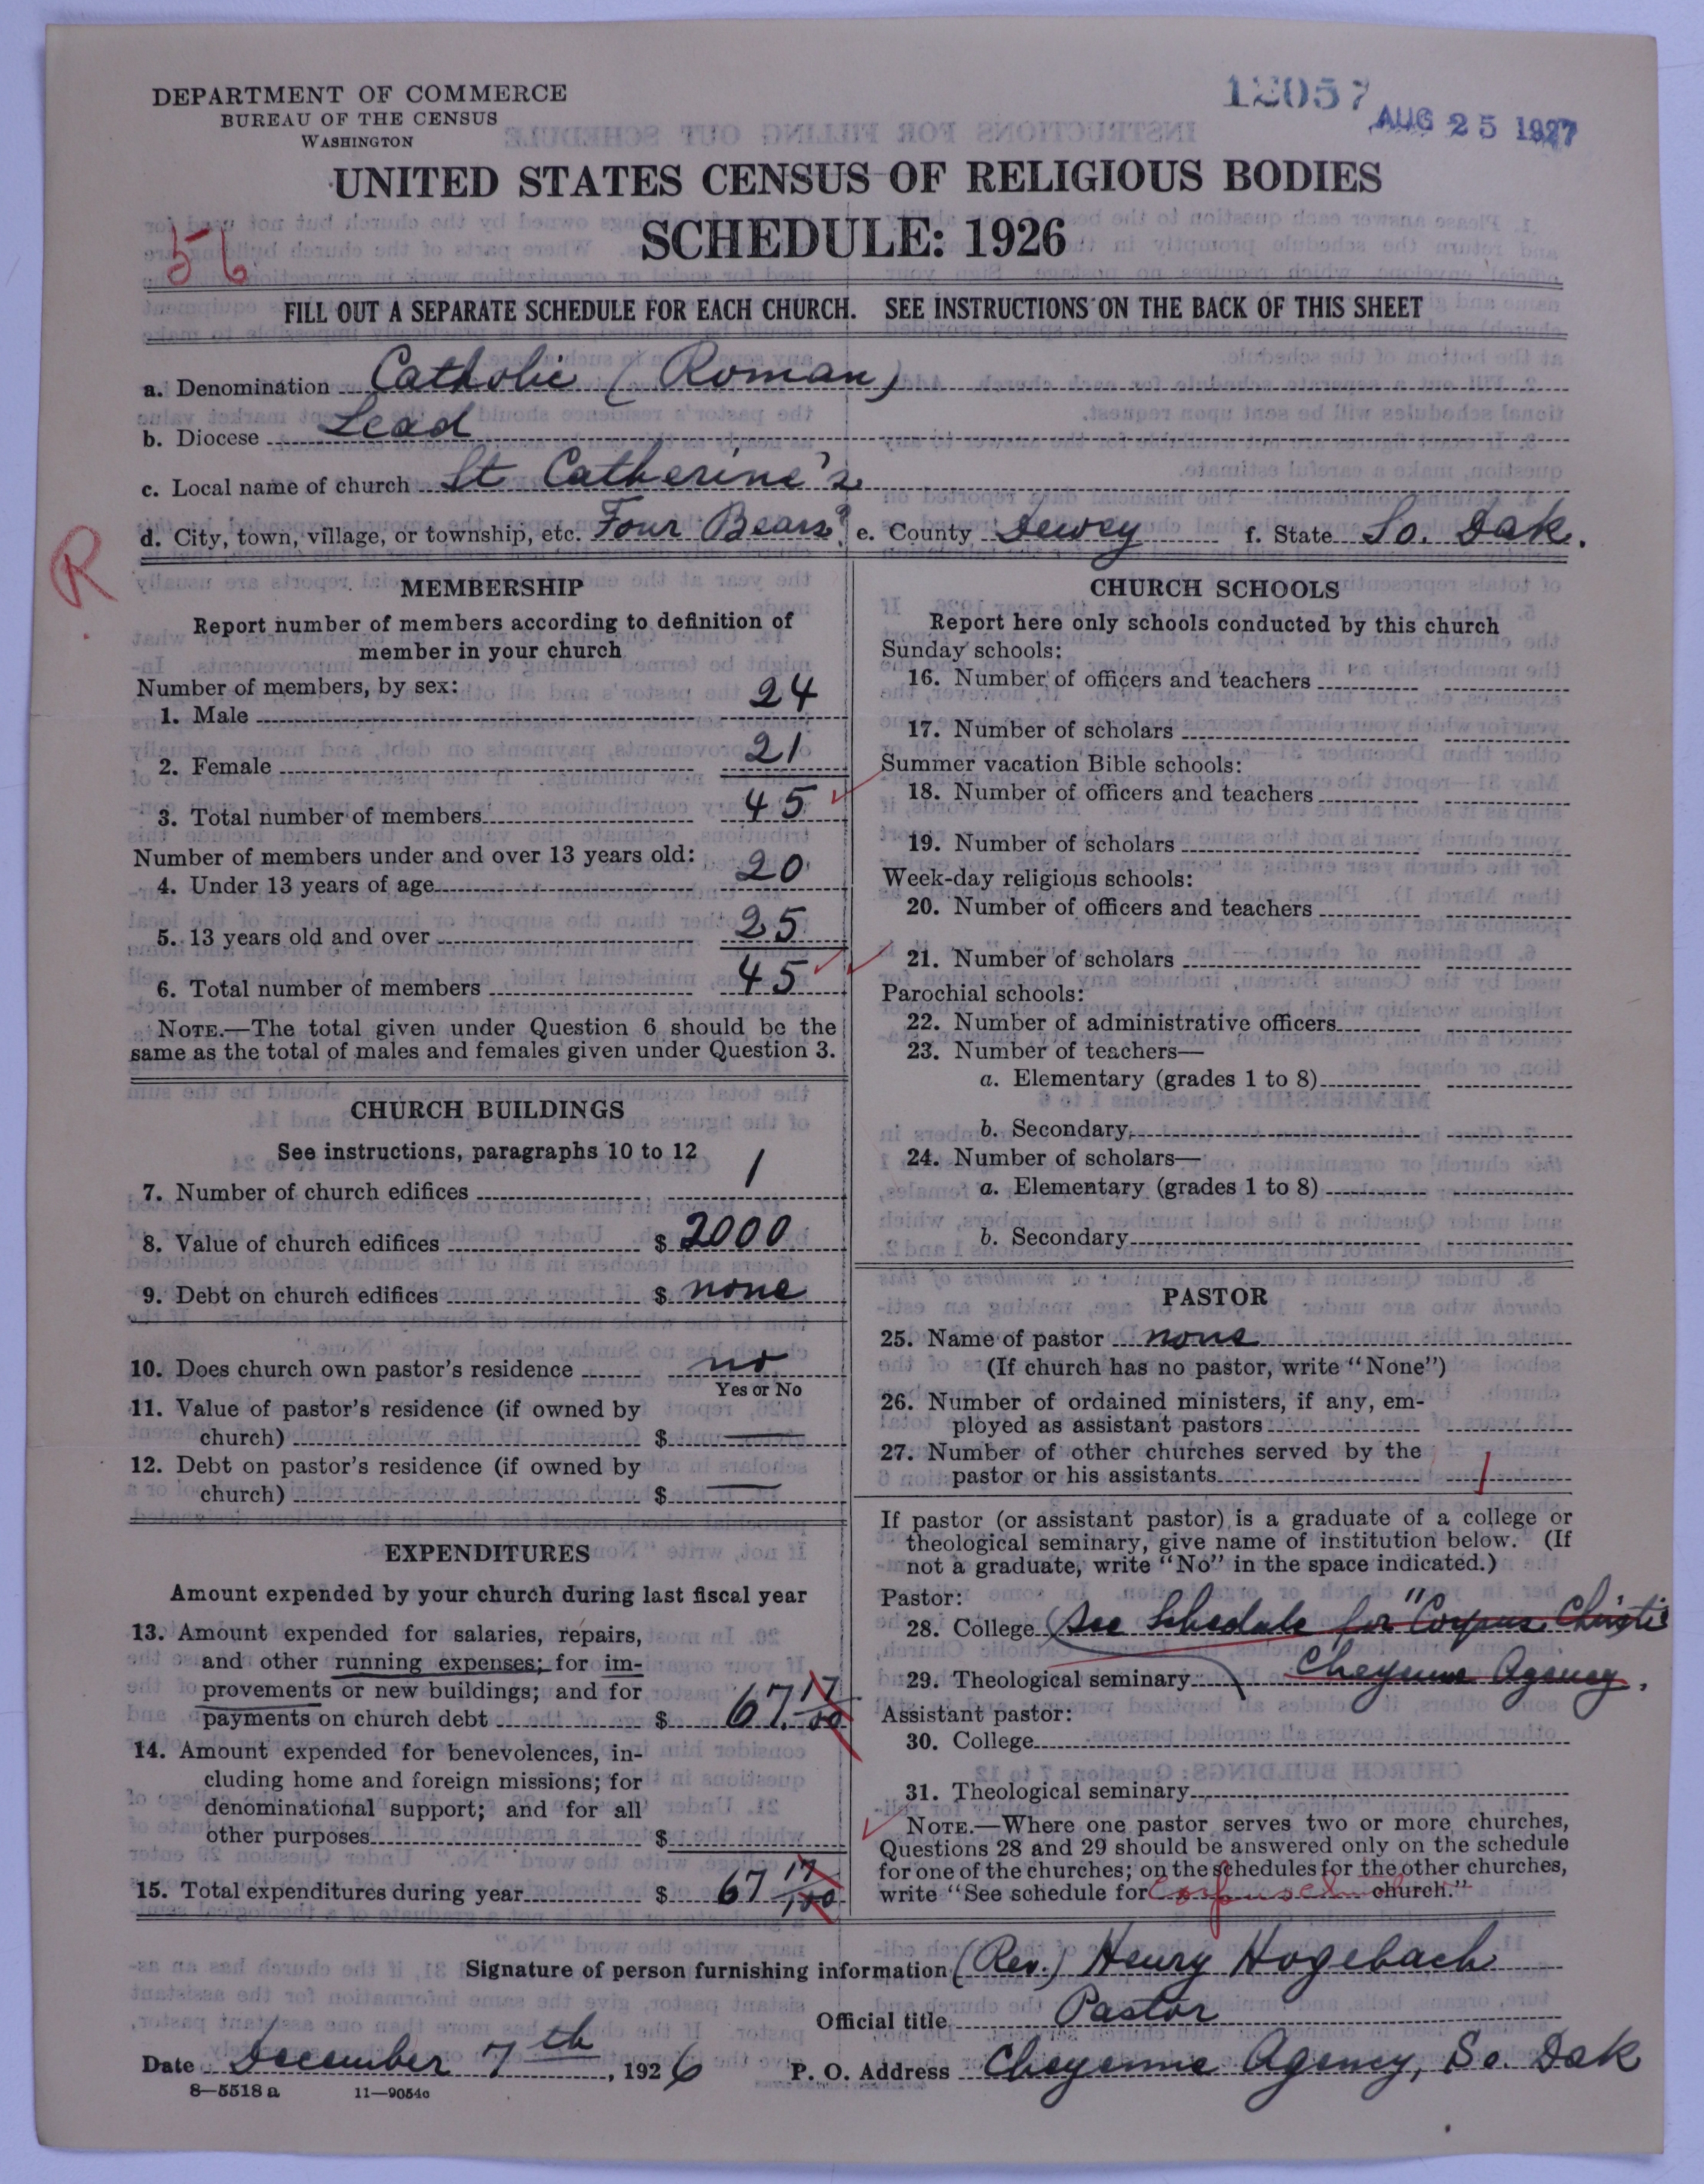 DEPARTMENT OF COMMERCE
BUREAU OF THE CENSUS
WASHINGTON
12057
AUG 25 1927
UNITED STATES CENSUS OF RELIGIOUS BODIES
SCHEDULE: 1926
56
FILL OUT A SEPARATE SCHEDULE FOR EACH CHURCH. SEE INSTRUCTIONS ON THE BACK OF THIS SHEET
a. Denomination Catholic (Roman)
b. Diocese Lead
c. Local name of church St Catherine's
d. City, town, village, or township, etc. Four Bears e. County Dewey f. State So. Dak.
R
MEMBERSHIP
Report number of members according to definition of
member in your church
Number of members, by sex:
1. Male 24
2. Female 21
3. Total number of members 45
Number of members under and over 13 years old:
4. Under 13 years of age 20
5. 13 years old and over 25
6. Total number of members 45
NOTE.—The total given under Question 6 should be the
same as the total of males and females given under Question 3.
CHURCH BUILDINGS
See instructions, paragraphs 10 to 12
7. Number of church edifices 1
8. Value of church edifices $ 2000
9. Debt on church edifices $ none
10. Does church own pastor's residence no
Yes or No
11. Value of pastor's residence (if owned by
church) $ —
12. Debt on pastor's residence (if owned by
church) $ —
EXPENDITURES
Amount expended by your church during last fiscal year
13. Amount expended for salaries, repairs,
and other running expenses; for im-
provements or new buildings; and for
payments on church debt $ 67. 17/100
14. Amount expended for benevolences, in-
cluding home and foreign missions; for
denominational support; and for all
other purposes $
15. Total expenditures during year $ 67 17/100
CHURCH SCHOOLS
Report here only schools conducted by this church
Sunday schools:
16. Number of officers and teachers
17. Number of scholars
Summer vacation Bible schools:
18. Number of officers and teachers
19. Number of scholars
Week-day religious schools:
20. Number of officers and teachers
21. Number of scholars
Parochial schools:
22. Number of administrative officers
23. Number of teachers—
a. Elementary (grades 1 to 8)
b. Secondary
24. Number of scholars—
a. Elementary (grades 1 to 8)
b. Secondary
PASTOR
25. Name of pastor none
(If church has no pastor, write "None")
26. Number of ordained ministers, if any, em-
ployed as assistant pastors
27. Number of other churches served by the
pastor or his assistants 1
If pastor (or assistant pastor) is a graduate of a college or
theological seminary, give name of institution below. (If
not a graduate, write "No" in the space indicated.)
Pastor:
28. College (See Schedule for "Corpus Christi
29. Theological seminary Cheyenne Agency.
Assistant pastor:
30. College
31. Theological seminary
NOTE.—Where one pastor serves two or more churches,
Questions 28 and 29 should be answered only on the schedule
for one of the churches; on the schedules for the other churches,
write "See schedule for church."
Signature of person furnishing information (Rev.) Henry Hogebach
Official title Pastor
Date December 7th, 1926 P. O. Address Cheyenne Agency, So. Dak
8—5518 a 11—9054c